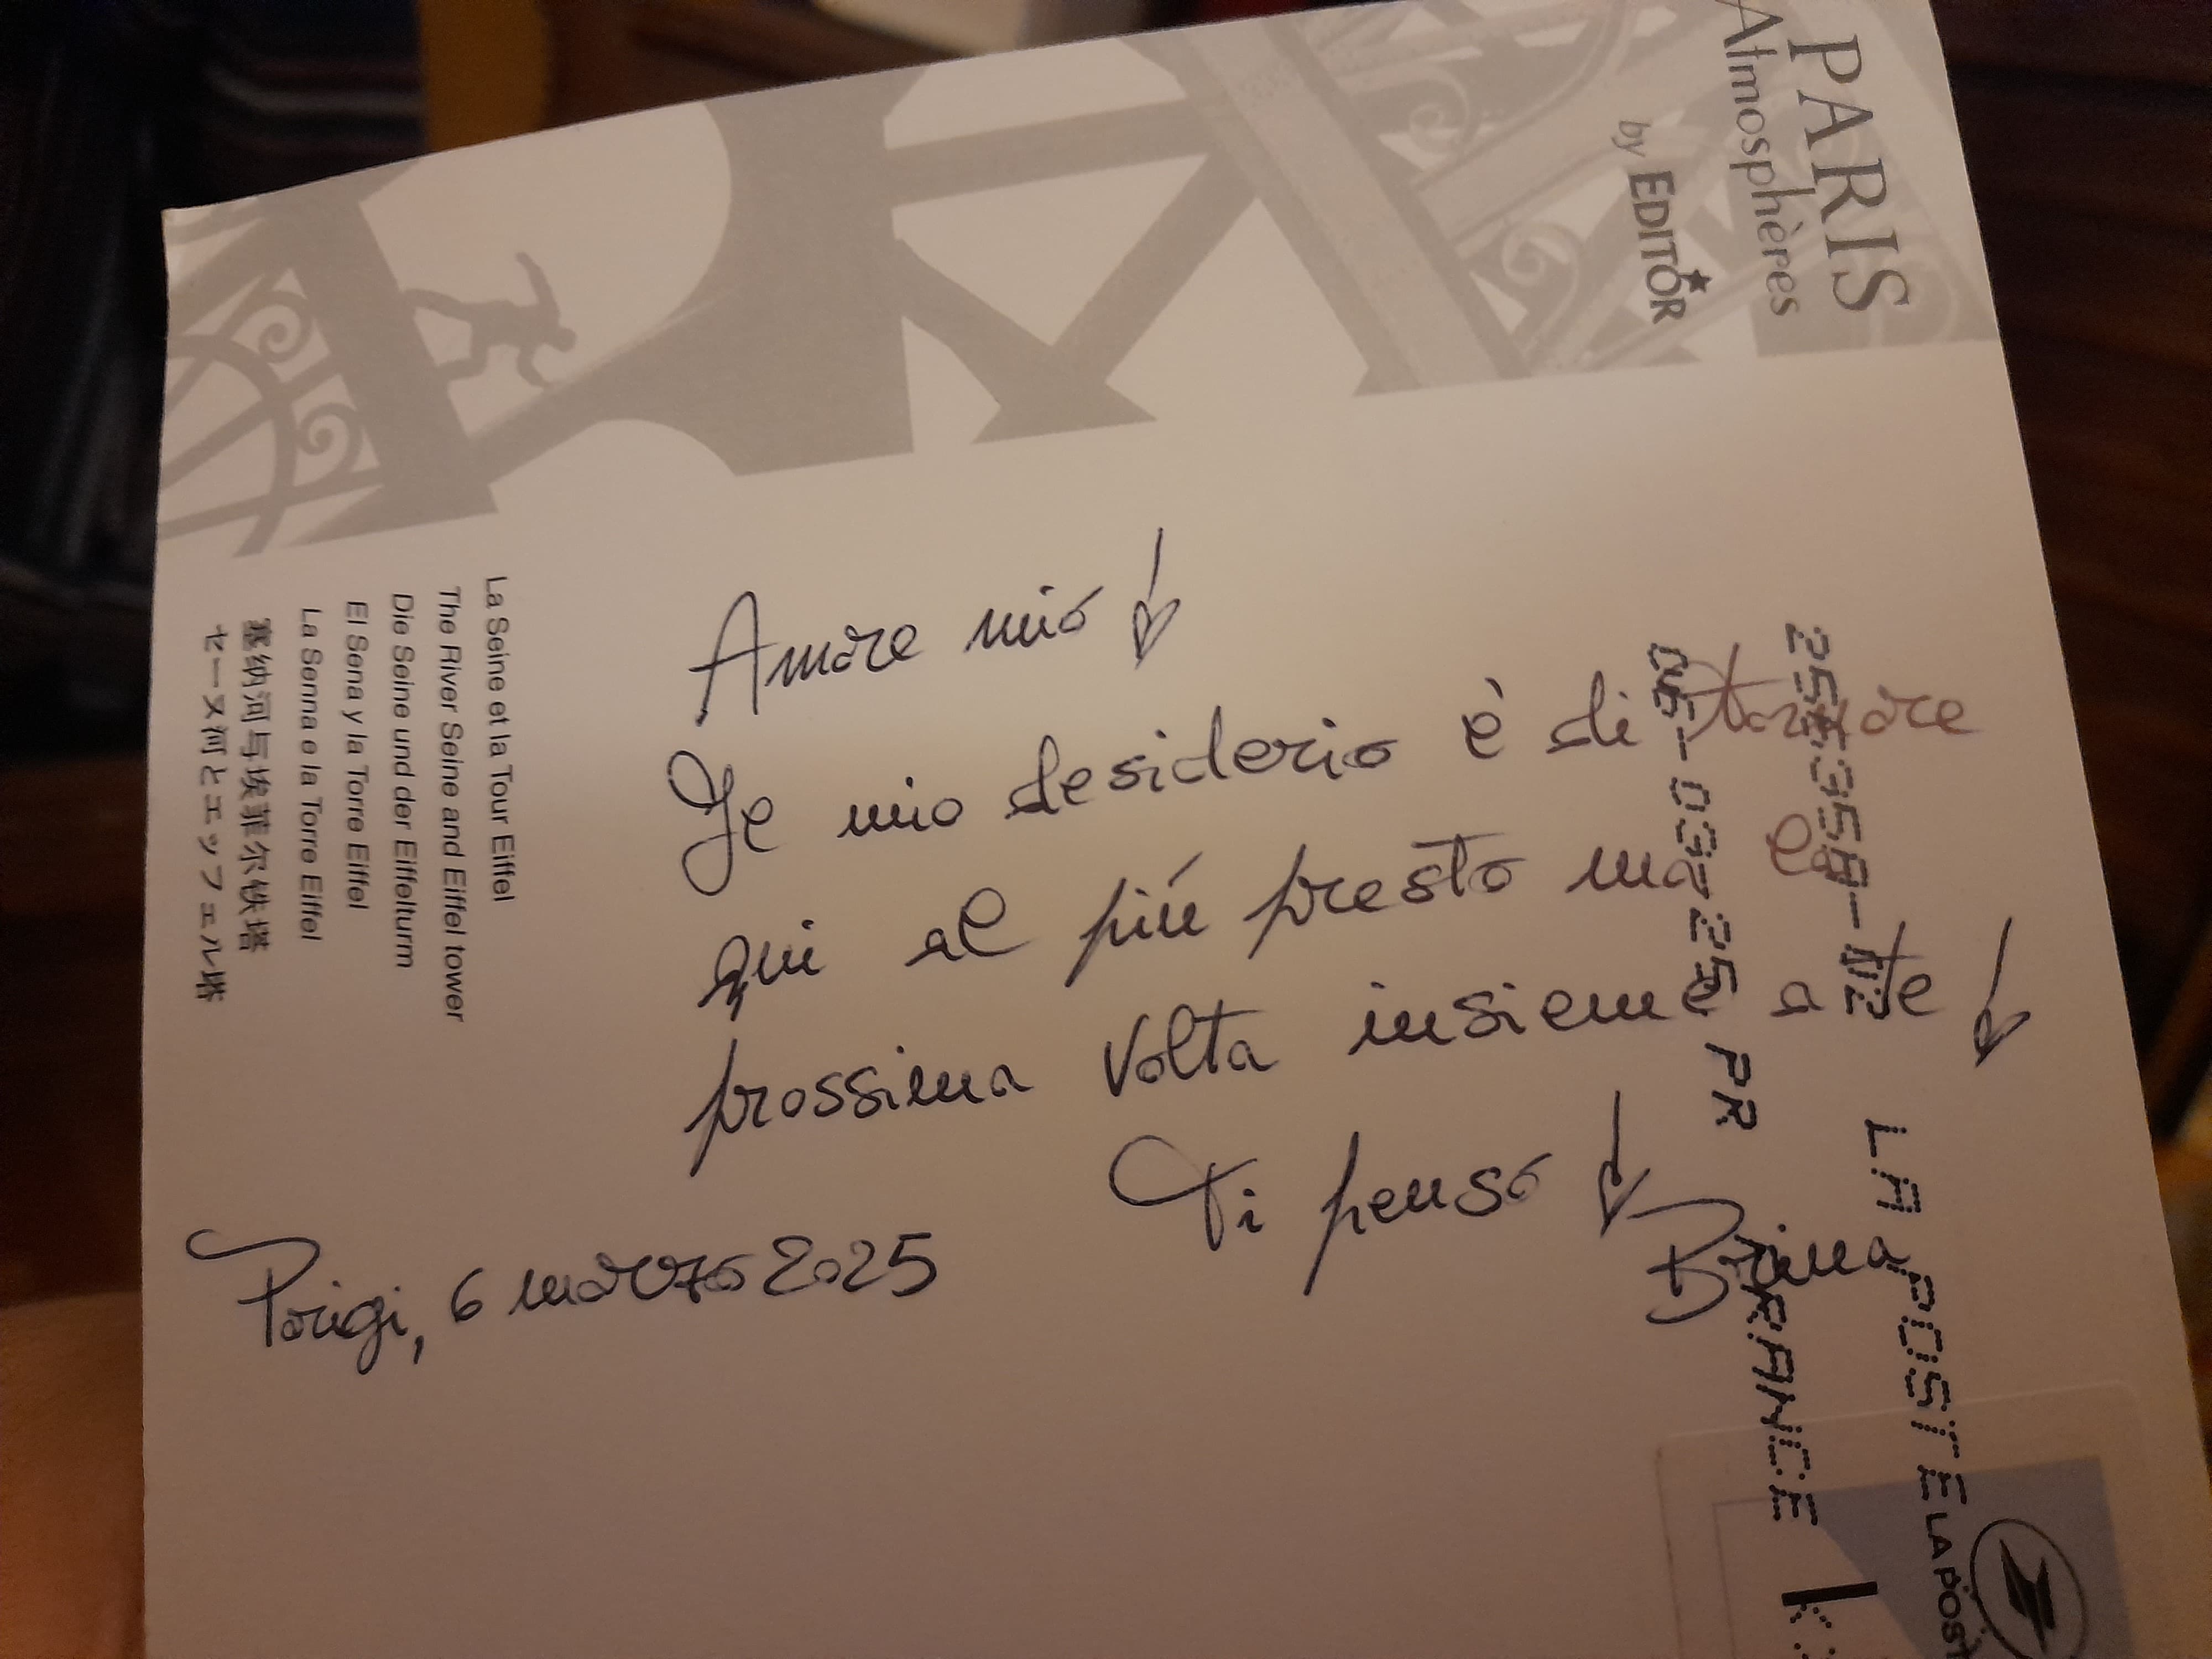 PARIS
Atmosphères
by EDITOR
Amore mio!
Il mio desiderio è di tornare
qui al più presto ma la
prossima volta insieme a te!
Ti penso!
Brina
Parigi, 6 marzo 2025
La Seine et la Tour Eiffel
The River Seine and Eiffel tower
Die Seine und der Eiffelturm
El Sena y la Torre Eiffel
La Senna e la Torre Eiffel
塞纳河与埃菲尔铁塔
セーヌ河とエッフェル塔
LA POSTE
-03-25 PR FRANCE
LA POSTE